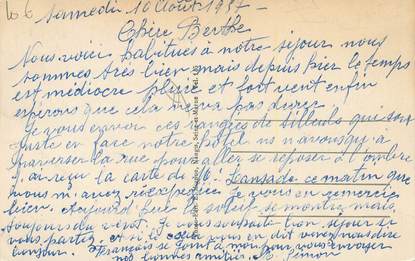 Samedi 10 Août 1957
Chère Berthe
Nous voici habitués à notre séjour nous
sommes très bien mais depuis hier le temps
est médiocre pluie et fort vent enfin
espérons que cela ne va pas durer
Je vous envoie ces rangées de tilleuls qui sont
juste en face notre hôtel ns n'avons qu'à
traverser la rue pour aller se reposer à l'ombre
J'ai reçu la carte de M. Lansade ce matin que
vous m'avez réexpédiée. Je vous en remercie
bien. Aujourd'hui le soleil se montre mais
toujours du vent. Je vous souhaite bon séjour si
vous partez. Et si le cœur vous en dit venez nous dire
bonjour. Français se joint à moi pour vous envoyer
nos bonnes amitiés. B. Simon